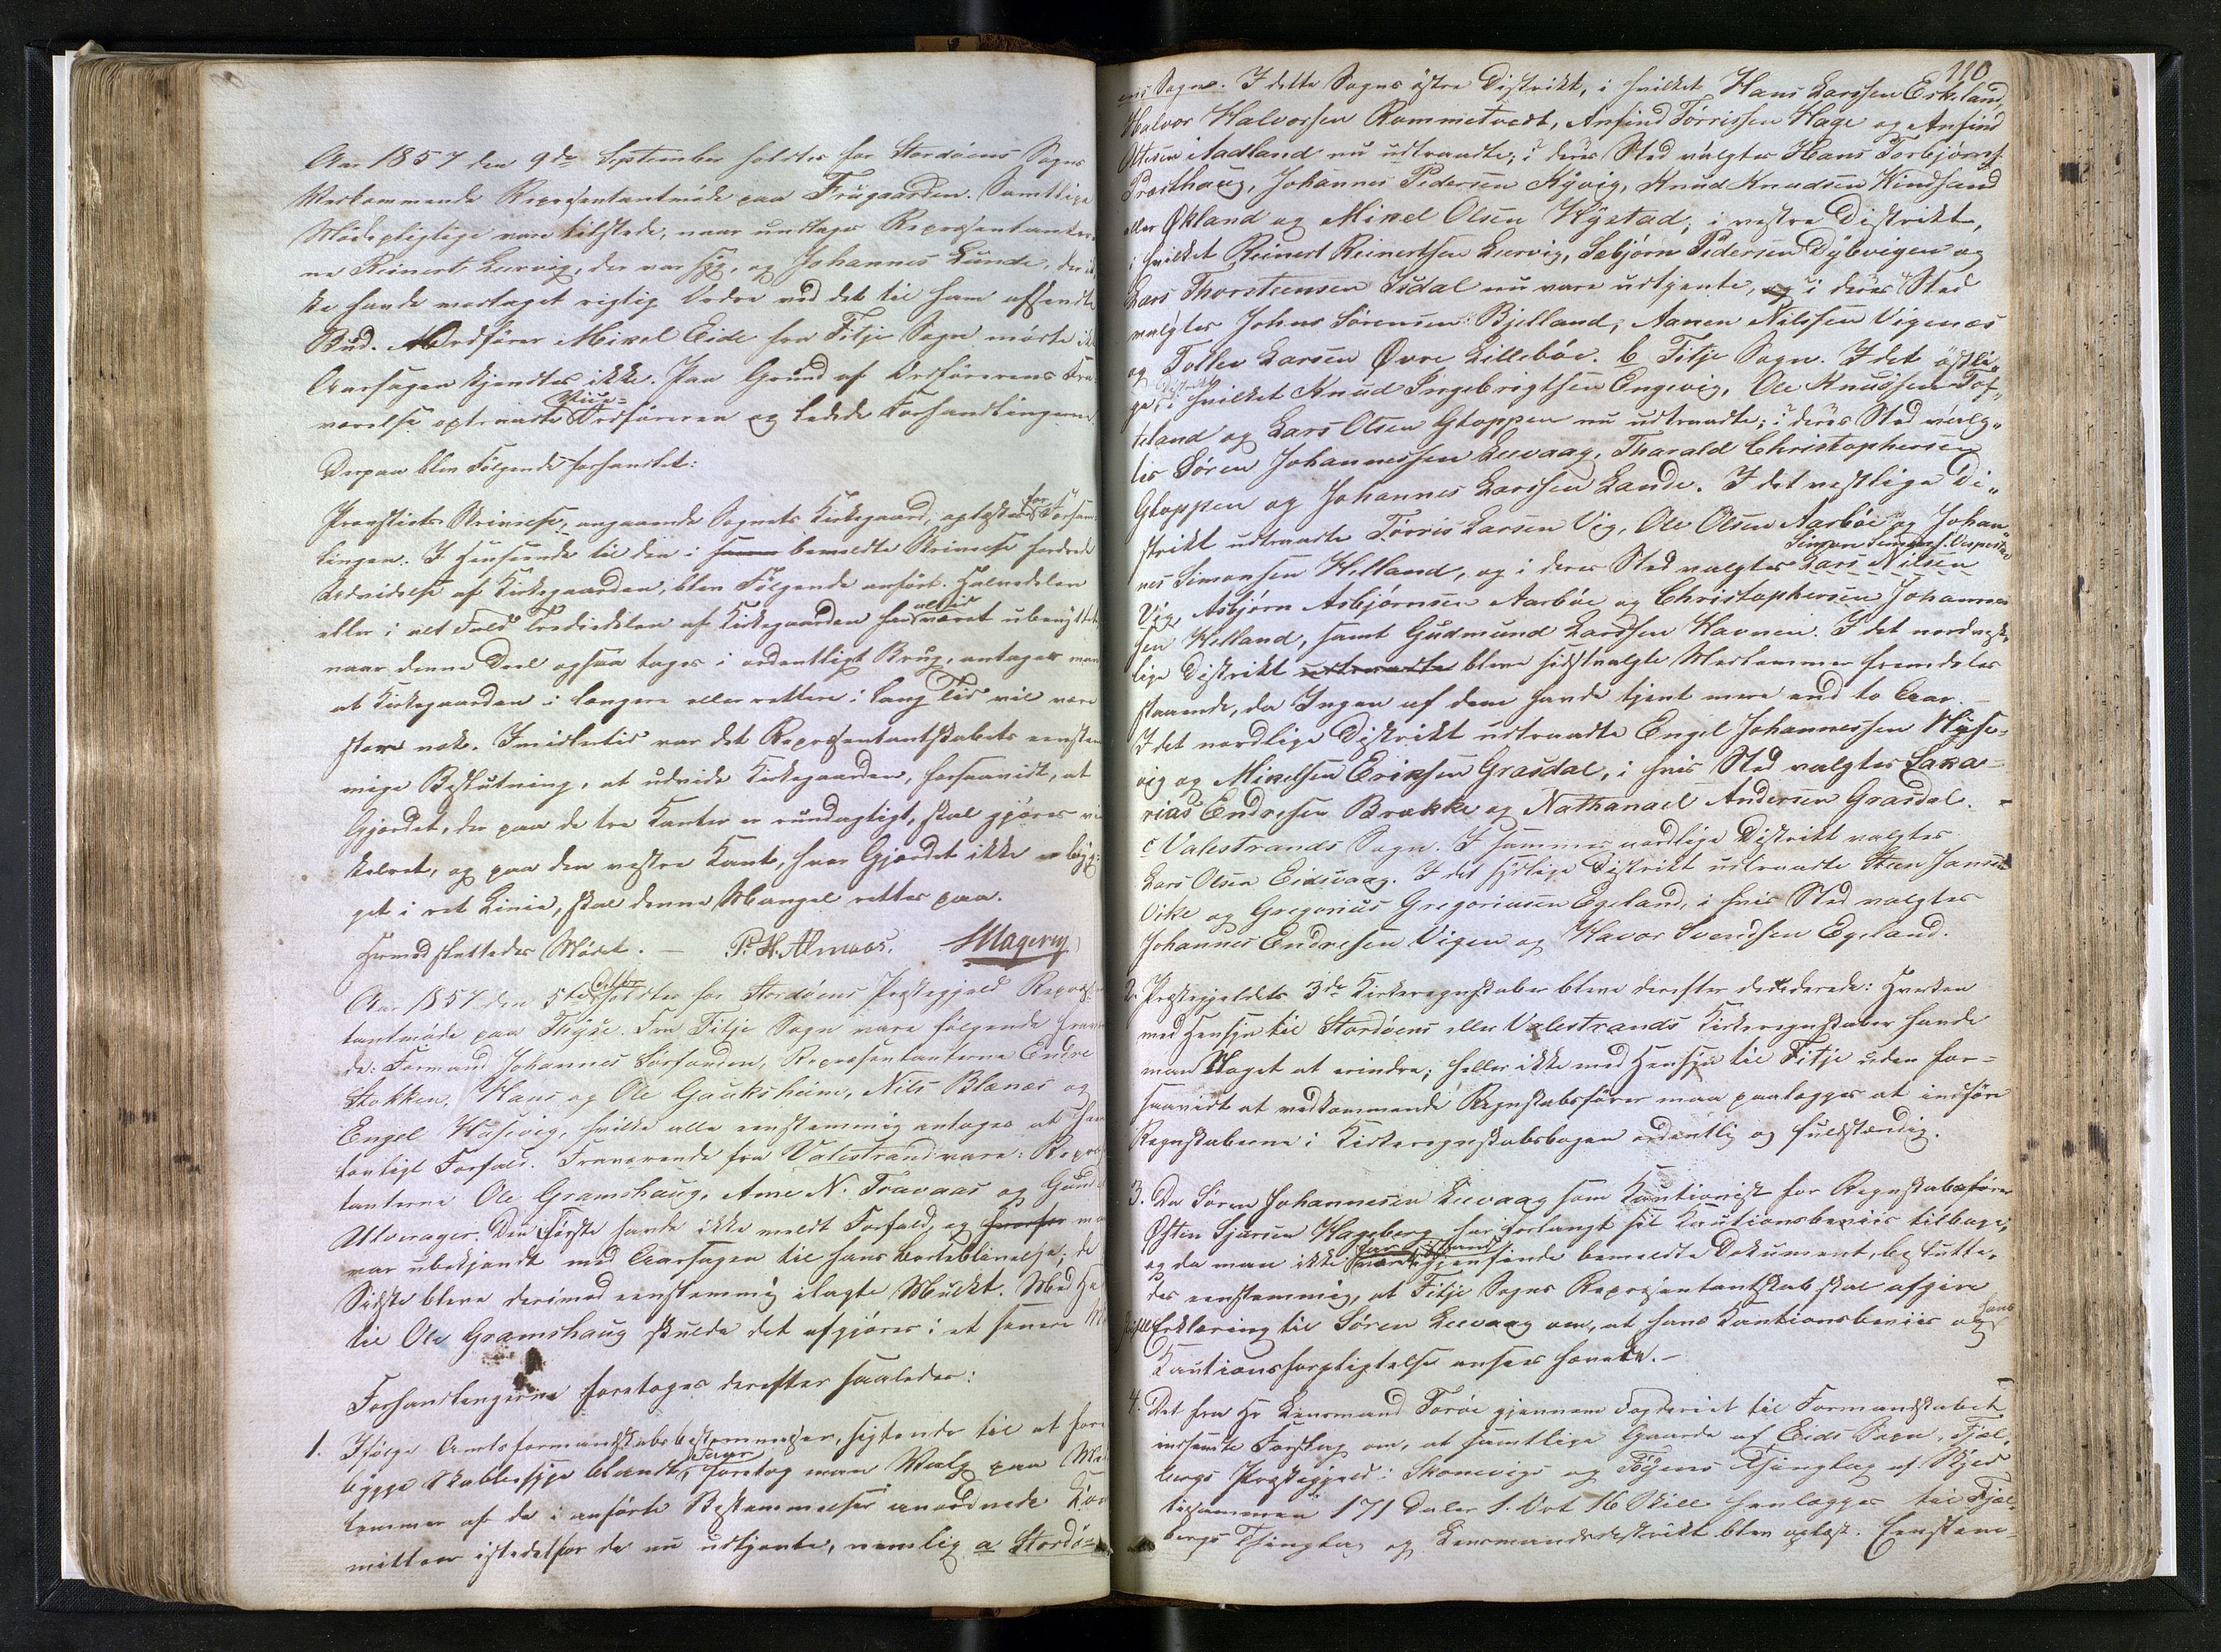 Aar 1857 den 9de September holdtes for Stordøens Sogns
Vedkommende Repræsentantmøde paa Frugaarden. Samtlige
Mødepligtige vare tilstede, naar undtages Repræsentanter-
ne Reinert Leervig, der var syg, og Johannes Lunde, der ik
ke havde modtaget rigtig Ordre ved det til ham afsendte
Bud. Ordfører Mikel Eide fra Fitje Sogn mødte ik
Aarsagen kjendtes ikke. Paa Grund af Ordførerens Fra-
værelse optraadte Vice-Ordføreren og ledede Forhandlingerne.
Derpaa blev Følgende forhandlet:
Provstiets Skrivelse, angaaende Sognets Kirkegaard, oplæstes for Forsam-
lingen. I Henseende til den i bemeldte Skrivelse fordrede
Udvidelse af Kirkegaarden, blev Følgende anført. Halvdelen
eller i alt Fald Trediedelen af Kirkegaarden har altid været ubenyttet
naar denne Deel ogsaa tages i ordentligt Brug, antager man
at Kirkegaarden i længere eller rettere i lang Tid vil være
stor nok. Imidlertid var det Repræsentantskabets eenstem
mige Beslutning, at udvide Kirkegaarden, forsaavidt, at
Gjærdet, der paa de tre Kanter er rundagtigt, skal gjøres vin
kelret, og paa den vestre Kant, hvor Gjærdet ikke er byg-
get i ret Linie, skal denne Mangel rettes paa.
Hermed sluttedes Mødet. — P. H. Almaas. Magerøy
Aar 1857 den 5te Octbr holdtes for Stordøens Præstegjeld Repræsen
tantmøde paa Thyse. Fra Fitje Sogn vare følgende fravæ
de: Formand Johannes Sørfonden, Repræsentanterne Endre
Stokken, Hans og Ole Gauksheim, Nils Blænæs og
Engel Huseveg, hvilke alle eenstemmig antages at have
lovligt Forfald. Fraværende fra Valestrand vare: Repræsen
tanterne Ole Gramshaug, Arne N. Travaas og Gund
Utveager. Den Første havde ikke meldt Forfald, og
var ubekjendt med Aarsagen til hans Udeblivelse; de
Sidste bleve derimod eenstemmig ilagte Mulkt. Med He
til Ole Gramshaug skulde det afgjøres i et senere M
Forhandlingerne foretoges derefter saaledes:
1. Ifølge Amtsformandskabsbestemmelser, sigtende til at fore
bygge Skabbesyge blandt Faar, foretog man Valg paa Med
lemmer af de i anførte Bestemmelser anordnede Kom
mitteer istedetfor de nu udtjente, nemlig a Stordø-
110
ens Sogn. I dette Sogns østre Distrikt, i hvilket Hans Larssen Eskeland,
Halvor Halvorsen Rommetvedt, Anfind Tørrissen Hage og Anfind
Ottesen Aadland nu udtraadte; i deres Sted valgtes Hans Torbjørns.
Præsthaug, Johannes Pedersen Kyvig, Knud Knudsen Hindsand
eller Økland og Mikel Olsen Hystad; i vestre Distrikt,
i hvilket Reinert Reinertsen Leervig, Sebjørn Pedersen Dybvigen og
Lars Thorsteensen Isdal nu vare udtjente, i deres Sted
valgtes Johns Sørensen Bjelland, Aanen Nilssen Vigenæs
og Tollev Larsen Øvre Lillebøe. b Fitje Sogn. I det østli-
ge Distrikt, i hvilket Knud Ingebrigtsen Engevig, Ole Knudsen Tof-
teland og Lars Olsen Gloppen nu udtraadte; i deres Sted valg-
tes Søren Johannessen Leevaag, Tharald Christophersen
Gloppen og Johannes Larssen Lande. I det vestlige Di-
strikt udtraadte Tørris Larsen Vig, Ole Olsen Aarbøe og Johan-
nes Simonsen Helland, og i deres Sted valgtes Lars Nilsen Simon Simons. Vespestad
Vig, Asbjørn Asbjørnsen Aarbøe og Christophersen Johannes
sen Helland, samt Gudmund Larssen Havnen. I det nordvest-
lige Distrikt udtraadte bleve sidstvalgte Medlemmer fremdeles
staaende, da Ingen af dem havde tjent mere end to Aar.
I det nordlige Distrikt udtraadte Engel Johannessen Huse-
vig og Mikelsen Eriksen Grasdal, i hvis Sted valgtes Saka-
rias Endresen Brække og Nathanael Andersen Grasdal.
c Valestrands Sogn. I sammes nordlige Distrikt valgtes
Lars Olsen Eidsvaag. I det sydlige Distrikt udtraadte Steen Jansen
Vike og Gregorius Gregoriusen Egeland, i hvis Sted valgtes
Johannes Endresen Vigen og Havor Svendsen Egeland.
2. Præstegjeldets 3de Kirkeregnskaber bleve derefter deciderede: Hverken
med Hensyn til Stordøens eller Valestrands Kirkeregnskaber havde
man Noget at erindre; heller ikke med Hensyn til Fitje uden for-
saavidt at vedkommende Regnskabsfører maa paalægges at indføre
Regnskaberne i Kirkeregnskabsbogen ordentlig og fuldstændig.
3. Da Søren Johannesen Leevaag som Kautionist for Regnskabsfører
Østen Sjursen Hageberg har forlangt sit Kautionsbeviis tilbage;
og da man ikke var istand gjenfinde bemeldte Dokument, beslutte-
des eenstemmig, at Fitje Sogns Repræsentantskab skal afgive
Erklæring til Søren Leevaag om, at hans Kautionsbeviis og hans
Kautionsforpligtelse ansees hævet. —
4. Det fra Hr Lensmand Torøe gjennem Fogderiet til Formandskabet
indsendte Forslag om, at samtlige Gaarde af Eids Sogn, Fjel-
bergs Præstegjeld i Skonevigs og Føyens Thinglag af Skyld
tilsammen 171 Daler 1. Ort 16 Skill henlægges til Fjel-
bergs Thinglag og Lensmandsdistrikt blev oplæst. Eenstem-